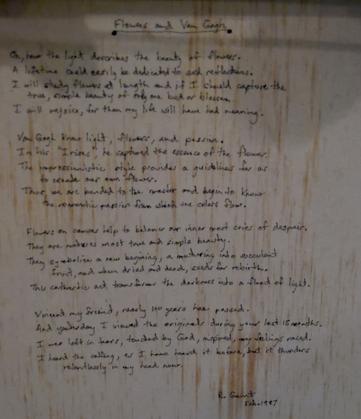 Flowers and Van Gogh
Oh, how the light describes the beauty of flowers.
A lifetime could easily be dedicated to such reflections.
I will study flowers at length and if I should capture the
true, simple beauty of only one bud or blossom,
I will rejoice, for then my life will have had meaning.
Van Gogh knew light, flowers, and passion.
In his "Irises", he captured the essence of the flower.
The impressionistic style provides a guideline for us
to render our own flower.
Thus we are bonded to the master and begin to know
the romantic passion from which the colors flow.
Flowers on canvas help to balance our inner most cries of despair.
They are natures most true and simple beauty.
They symbolize a new begining, a maturing into succulent
fruit, and when dried and dead, seeds for rebirth.
This cathartic act transforms the darkness into a flood of light.
Vincent my friend, nearly 100 years has passed.
And yesterday I viewed the originals during your last 15 months.
I was left in tears, touched by God, inspired, my feelings raced.
I heard the calling, as I have heard it before, but it thunders
relentlessly in my head now.
R.
Feb. 1987